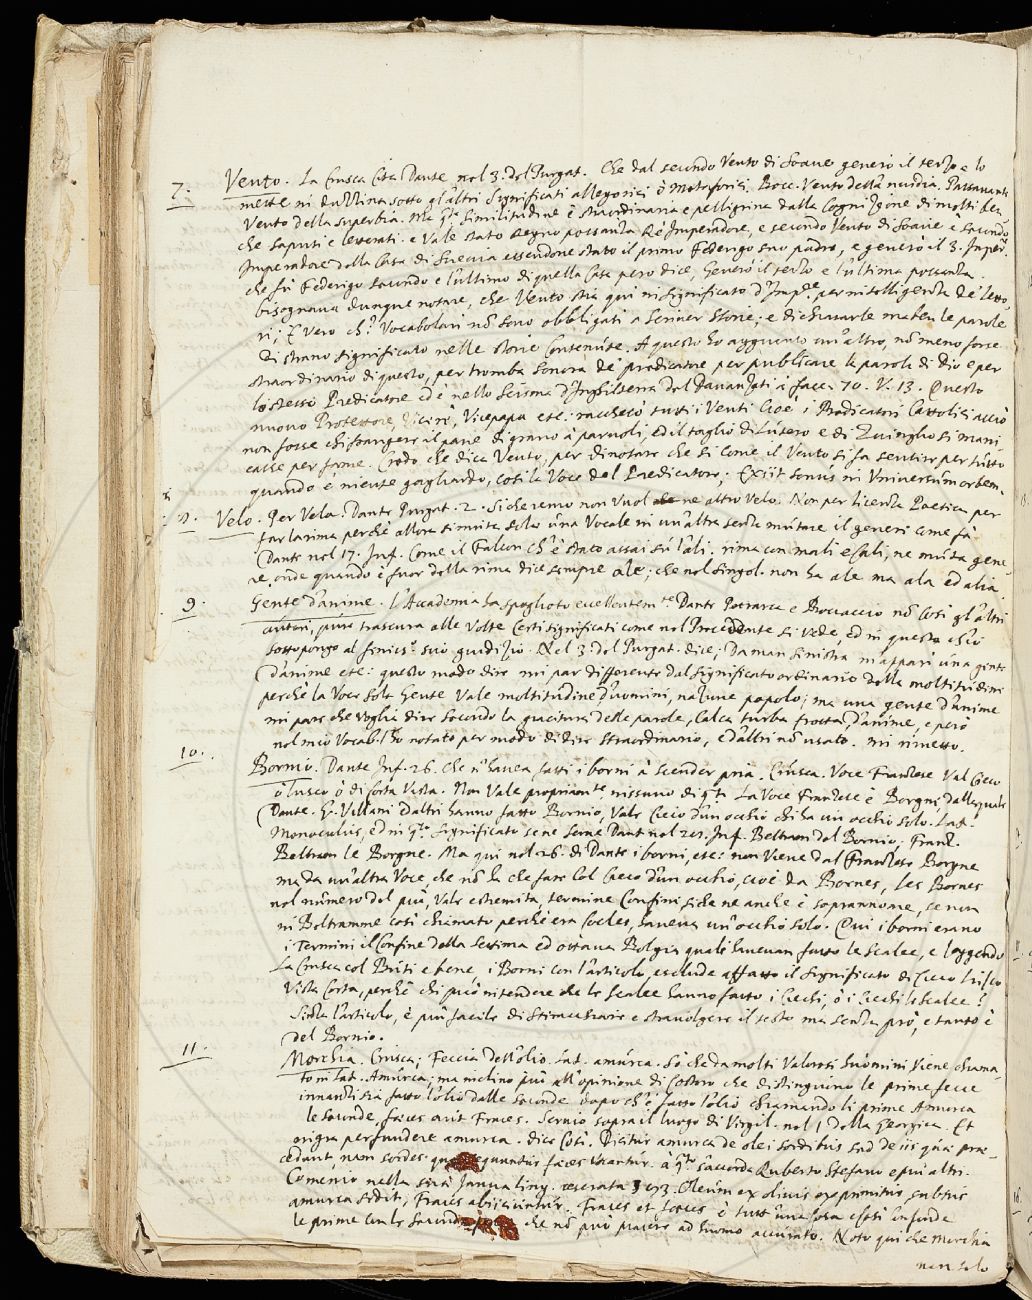 7. Vento. La Crusca cita Dante nel 3. del Purgat. Che dal secondo Vento di Soave generò il terzo e lo
mette in dozzina sotto gl'altri significati allegorici ò Metaforici. Bocc. Vento della nuidia. Passavanti
Vento della superbia. Ma q.ta similitudine è straordinaria e pellegrina dalla Cognizione di molti
che saputi e letterati. e Vale stato Regno possanza Rè Imperadore, e secondo Vento di Soave è secondo
Imperadore della Casa di Suevia essendone stato il primo Federigo suo padre, e generò il 3. Imper.e
che fù Federigo secondo e l'ultimo di quella Casa però dice, Generò il terzo e l'ultima possanza.
bisognava dunque notare, che Vento stia qui in significato d'Imp.e per intelligenza de' letto
ri; È vero ch.e Vocabolari nõ sono obbligati a scriver storie; e dichiararle ma ben le parole
di strano significato nelle storie Contenute. A questo ho aggiunto un'altro, nõ meno forse
straordinario di questo, per tromba sonora de' predicatore per publicare la parola di Dio e per
lo stesso Predicatore cd'è nello Scisma d'Inghilterra del Davanzati à facca 70. V. 13. Questo
nuovo Protettore, Vicerè, Vicepapa etc. racchetò tutti i Venti Cioè i Predicatori Cattolici acciò
non fosse chi frangere il pane di grano à parvoli, ed il toglio di Lutero e di Zuinglio si mani
casse per fame. Credo che dica Vento, per dinotare che si come il Vento si fa sentire per tutto
quando è niente gagliardo, così la Voce del Predicatore; Exiit sonus in Universum orbem.
8. Velo. Per Vela. Dante Purgat. 2. Siche remo non Vuol ne altro Velo. Non per licenza Poetica per
far la rima perchè allora si muta solo una Vocale in un'altra senza mutare il genere come fà
Dante nel 17. Inf. Come il Falcon ch'è stato assai sù l'ali. rima con mali e Cali, ne muta gene
re, onde quando è fuor della rima dice sempre ale; che nel singol. non ha ale ma ala ed alia.
9. Gente d'anime. L'Accademia ha spogliato eccellentem.te Dante Petrarca e Boccaccio nõ Così gl'altri
autori, pure trascura alle Volte Certi significati come nel Precedente si vede, ed in questo ch'io
sottopongo al finiss.o suo giudizio. Nel 3. del Purgat. dice; Da man sinistra m'apparì una gente
d'anime etc: questo modo dire mi par differente dal significato ordinario della moltitudine
perchè la Voce sola Gente Vale moltitudine d'uomini, nazione popolo; ma una gente d'anime
mi pare che voglia dire secondo la giacitura delle parole, Calca turba frotta, d'anime, e però
nel mio Vocab. l'ho notato per modo di dire straordinario, e d'altri nõ usato. mi rimetto.
10. Bornio. Dante Inf. 26. Che n'havea fatti i borni à scender pria. Crusca. Voce Franzese Val Cieco
ò lusco ò di corta Vista. Non Vale propriam.te nissuno di q.ti La Voce Franzese è Borgne dalla quale
Dante. G. Villani ed altri hanno fatto Bornio, Vale Cieco d'un occhio chi ha un occhio solo. Lat.
Monoculus, ed in q.to significato se ne serve Dant nel 28. Inf. Beltram dal Bornio, Franz.
Beltram le Borgne. Ma qui nel 26. di Dante i borni, etc: non Viene dal Franzese Borgne
ma da un'altra Voce che nõ hà che fare Col Cieco d'un occhio, cioè da Bornes, les Bornes
nel numero del più, Vale estremità, termine Confini, siche ne anche è soprannome, se non
in Beltramme così chiamato perchè era Cocles, haveva un'occhio solo. Qui i borni erano
i Termini il Confine della settima ed ottava Bolgia quali havevan fatto le Scalee, e leggendo
La Crusca col Buti e bene, i Borni con l'articolo, esclude affatto il significato di Cieco lusco
Vista Corta, perchè chi può intendere che le scalee hanno fatto i Ciechi, ò i Ciechi le scalee?
Senza l'articolo, è più facile di stiracchiare e stravolgere il testo ma senza prò, e tanto è
del Bornio.
11. Morchia. Crusca; Feccia dell'olio. Lat. amurca. Sò che da molti Valorosi huomini Viene chiama-
to in Lat. Amurca; ma inclino più all'opinione di Costoro che distinguono le prime fecce
innanzi sia fatto l'olio dalle seconde dopo ch'è fatto l'olio chiamando li prime Amurca
le seconde, fæces aut Fraces. Servio sopra il luogo di Virgil. nel 1 della Georgica. Et
nigra perfundere amurca. dice Così. Dicitur amurca de olei sordibus sed de iis quæ præ-
cedunt, non sordes quæ sequuntur fæces Vocantur. à q.to s'accorda Ruberto Stefano e più altri.
Comenio nella sua Janua ling. reserata § 493. Oleum ex olivis exprimitur, subtus
amurca sedit, Fraces abijciuntur. Fraces et fæces è tutt'una cosa e così confonde
le prime con le seconde che nõ può piacere ad huomo accurato. Noto qui che Morchia
non solo